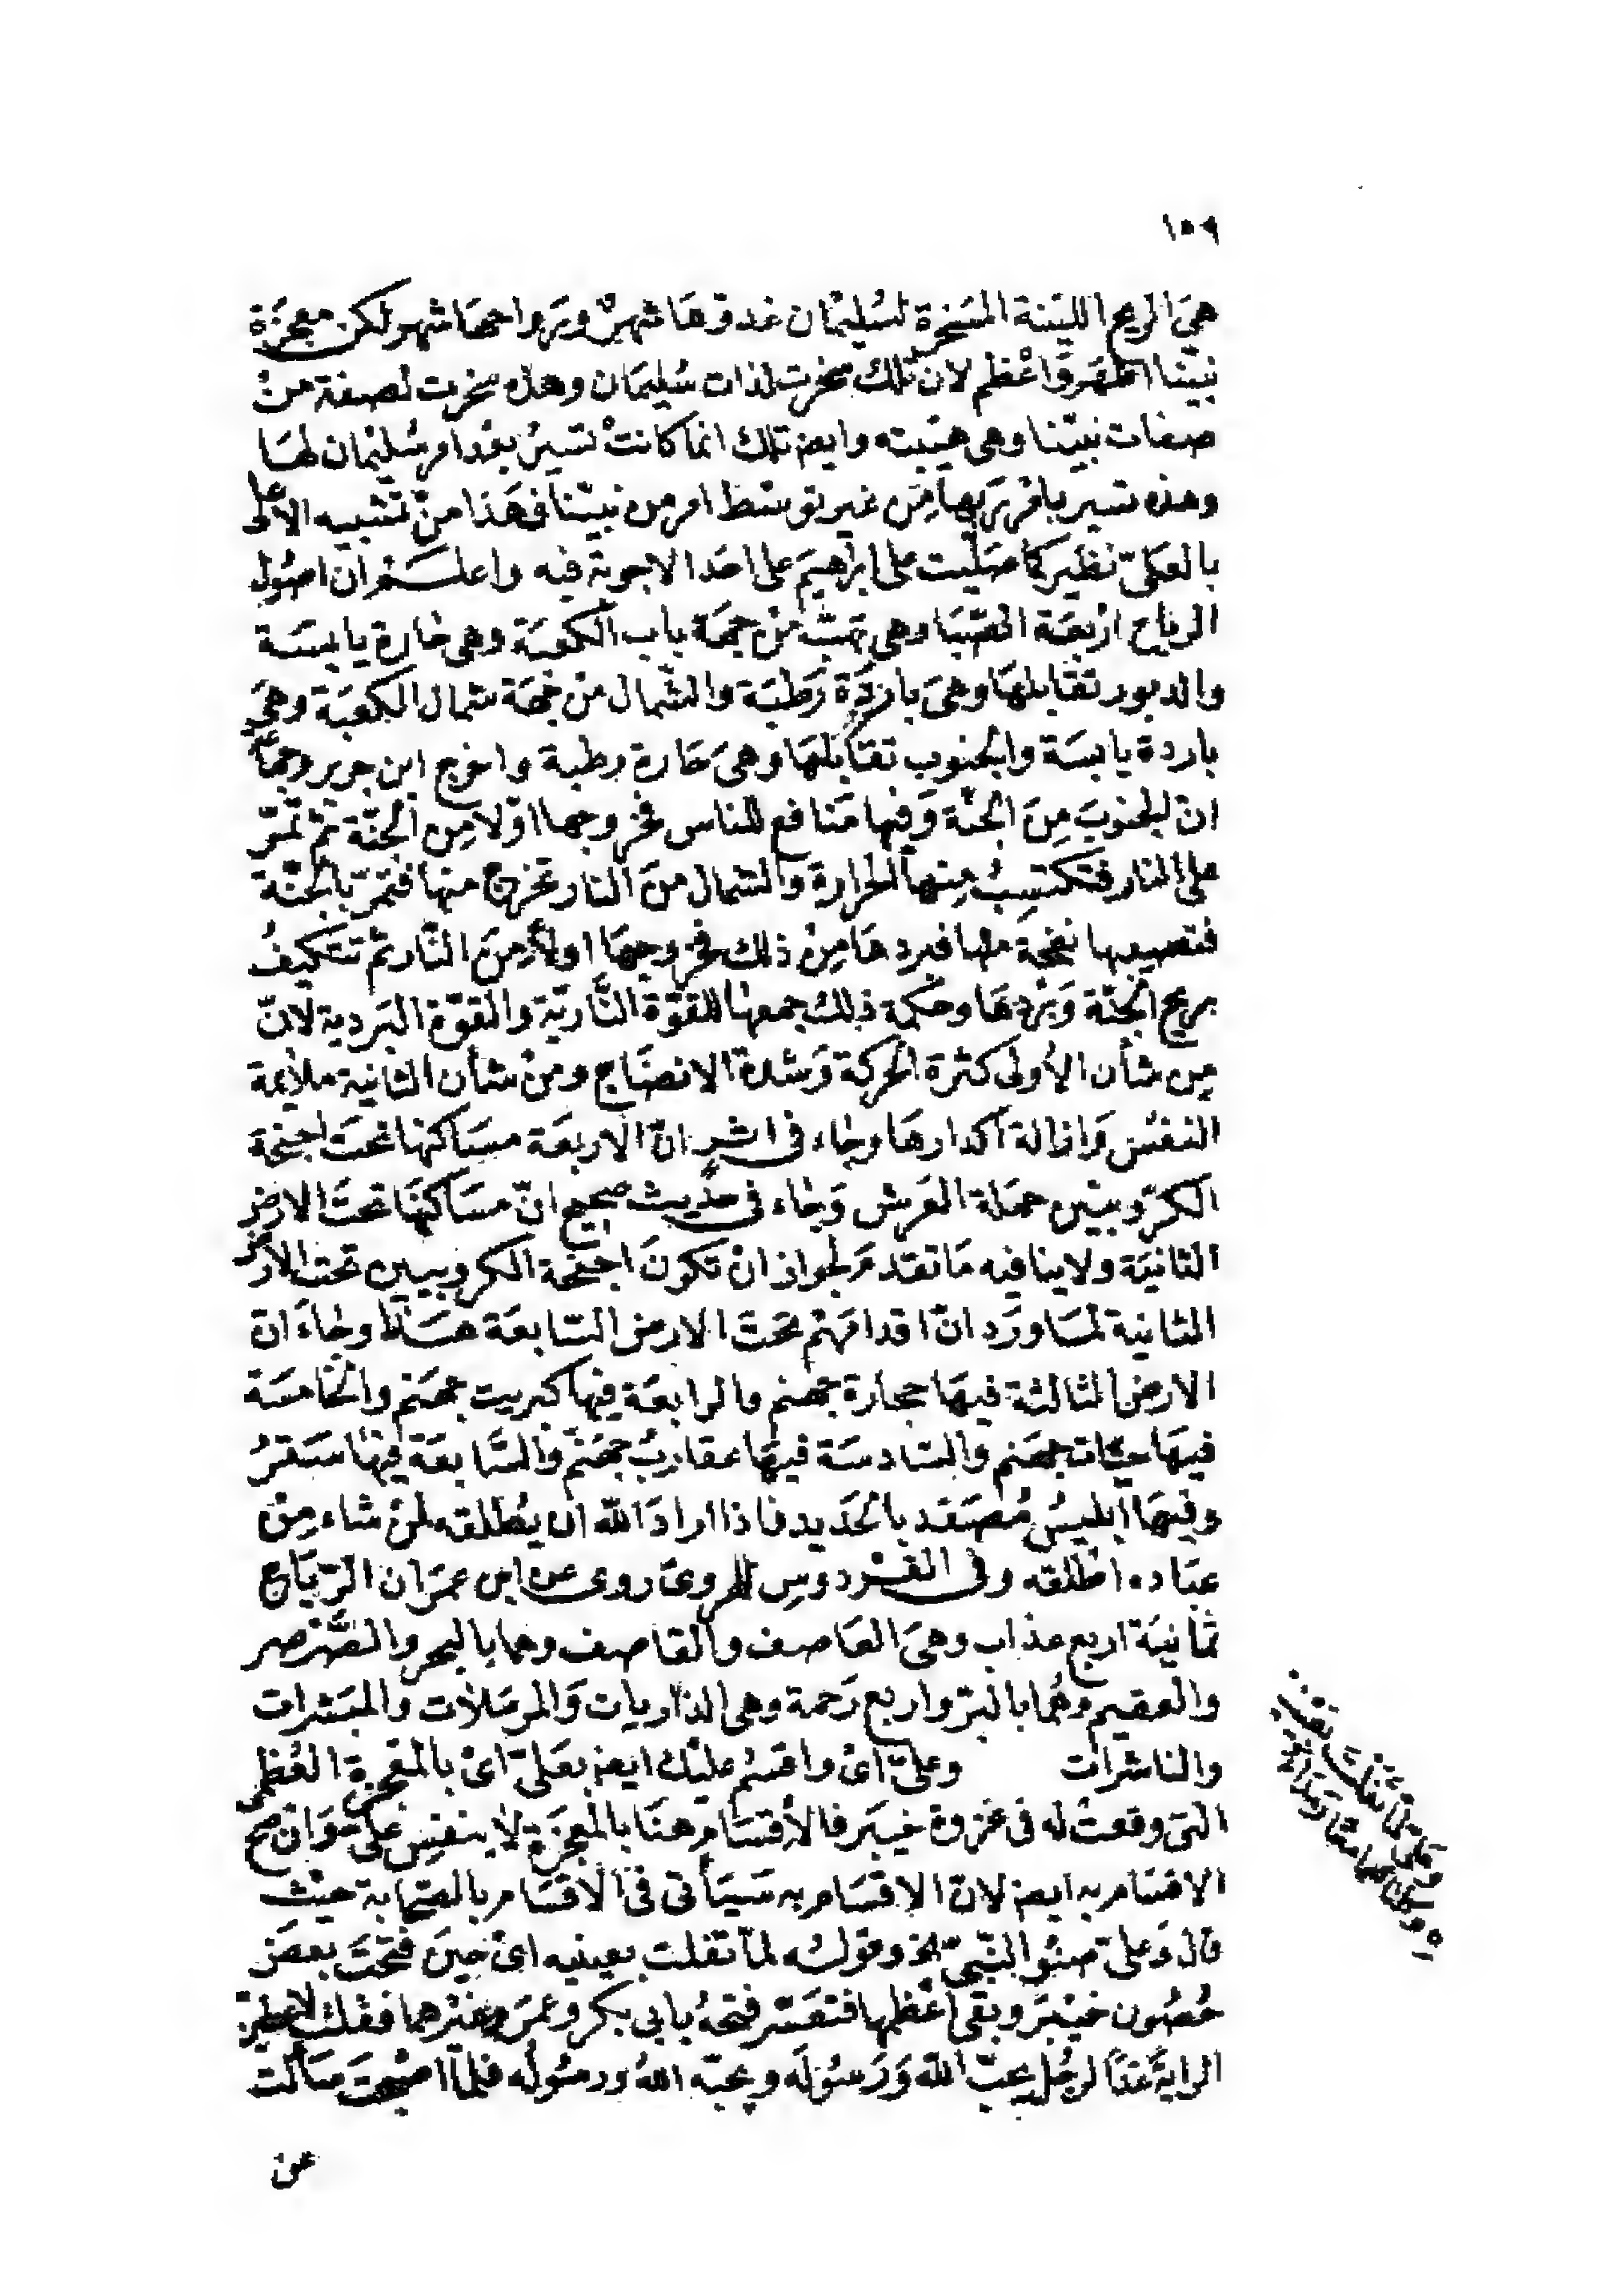 ١٥٩
هيَ الريح اللينة المسَخرة لسُليمَان غدوّهَا شهرٌ ورَواحهَا شهر لكن معجزَة
نبيّنا اظهَر وَاعْظم لان تلك سخرت لذات سُليمَان وهذه سخرت لصفة منْ
صفات نبيّنا وهى هيْبته وايض تلك انما كانتْ تسيرُ بعْد امر سُليْمان لهَا
وهذه تسير بامْر رَبهَا مِن غير توسّط امر من نبيّنا فهَذا منْ تشبيه الاعلى
بالعَلىّ نظير كما صَليْت على ابراهيمَ على احَد الاجوبة فيه واعلـم ان اصُول
الرياح ارْبعَة الصّبَا وهى تهبّ منْ جهَة باب الكعبَة وهى حَارة يابسَة
والدبور تقابلهَا وهىَ باردَة رَطبَة والشمال منْ جهَة شمال الكعبَة وهىَ
باردة يابسَة والجنوب تقابلهَا وهىَ حَارة رطبة واخرج ابن جرير وجمَاعة
ان الجنوبَ مِنَ الجنّة وَفيها مَنافع للناس فخروجها اوّلا مِن الجنّة ثمّ تمرّ
على النار فتكتسِبُ مِنهَا الحرارة والشمال منَ النار تخرج منها فتمرّ بالجنّة
فتصيبها نفحة منها فبردهَا مِنْ ذلك فخروجهَا اولا مِنَ النّار ثمّ تتكيفُ
بريح الجنّة وَبرْدهَا وحكمة ذلك جمعهَا للقوّة النَّاريّة والقوّة البَردية لانّ
مِن شأن الأولى كثرَة الحركة وَشدة الانضَاج ومنْ شأن الثانية ملائمة
النفسْ وَازالة اكدارهَا وجاء فى اثرٍ انّ الاربعَة مسَاكنها تحتَ اجنحَة
الكرّوبيْين حمَلة العَرش وَجاء فى حدِيث صحيح انّ مسَاكنهَا تحتَ الارض
الثانيَة ولا ينافيه مَا تقدمَ لجواز انْ تكونَ اجنحَة الكروبيين تحت الارض
الثانية لمَا ورَد انّ اقدامَهمْ تحَتَ الارض السّابعَة هنـاك وجاءَ ان
الارض الثالثة فيهَا حجارة جهنم والرابعَة فيها كبريت جهَنم والخامسَة
فيهَا حيّات جهَنم والسّادسَة فيهَا عقاربُ جهَنّم والسَّابعَة فيهَا سَقرُ
وفيهَا ابليسُ مُصَفد بالحَديد فاذا ارادَ الله ان يُطْلقه لمنْ شاء مِنْ
عبَاده اطْلقه وفى الفـرْدوسِ المروىّ روى عن ابن عمرَان الرّيَاح
ثمانيَة اربع عذاب وهىَ العَاصف والقاصف وهما بالبحر والصَّرْصر
والعقيم وهُما بالبرّ واربع رَحمة وهى الذاريات وَالمرسَلات والمبَشرات
والناشراتْ وعلىّ اىْ واقسُم عليْك ايض بعَلىّ اىْ بالمعْجزة العُظمى
التى وقعتْ له فى غزوة خيبَر فالأقسَام هنَا بالمعجزَة لا بنفسِ علىّ وَان صح
الاقسَام به ايض لانّ الاقسَام به سَيَأتى فى الاقسَام بالصّحابة حيْث
قال وَعلىّ صنْو النّبىّ الخ وقولـُه لمّا تفلت بعينيه اىْ حِينَ فتحْتَ بعضَ
حُصُون خيْبَر وبقى اعْظمها فتعَسّر فتحهُ بابى بكر وعمَر وغيْرهما فقلت لاعطينّ
الرايةَ غدًا لرجُل يحبّ اللهَ وَرَسُولَه ويحبّه اللهُ ورسُوله فلمّا اصْبحتَ سَألت
عن
وعلى لما تفلت بعينيه